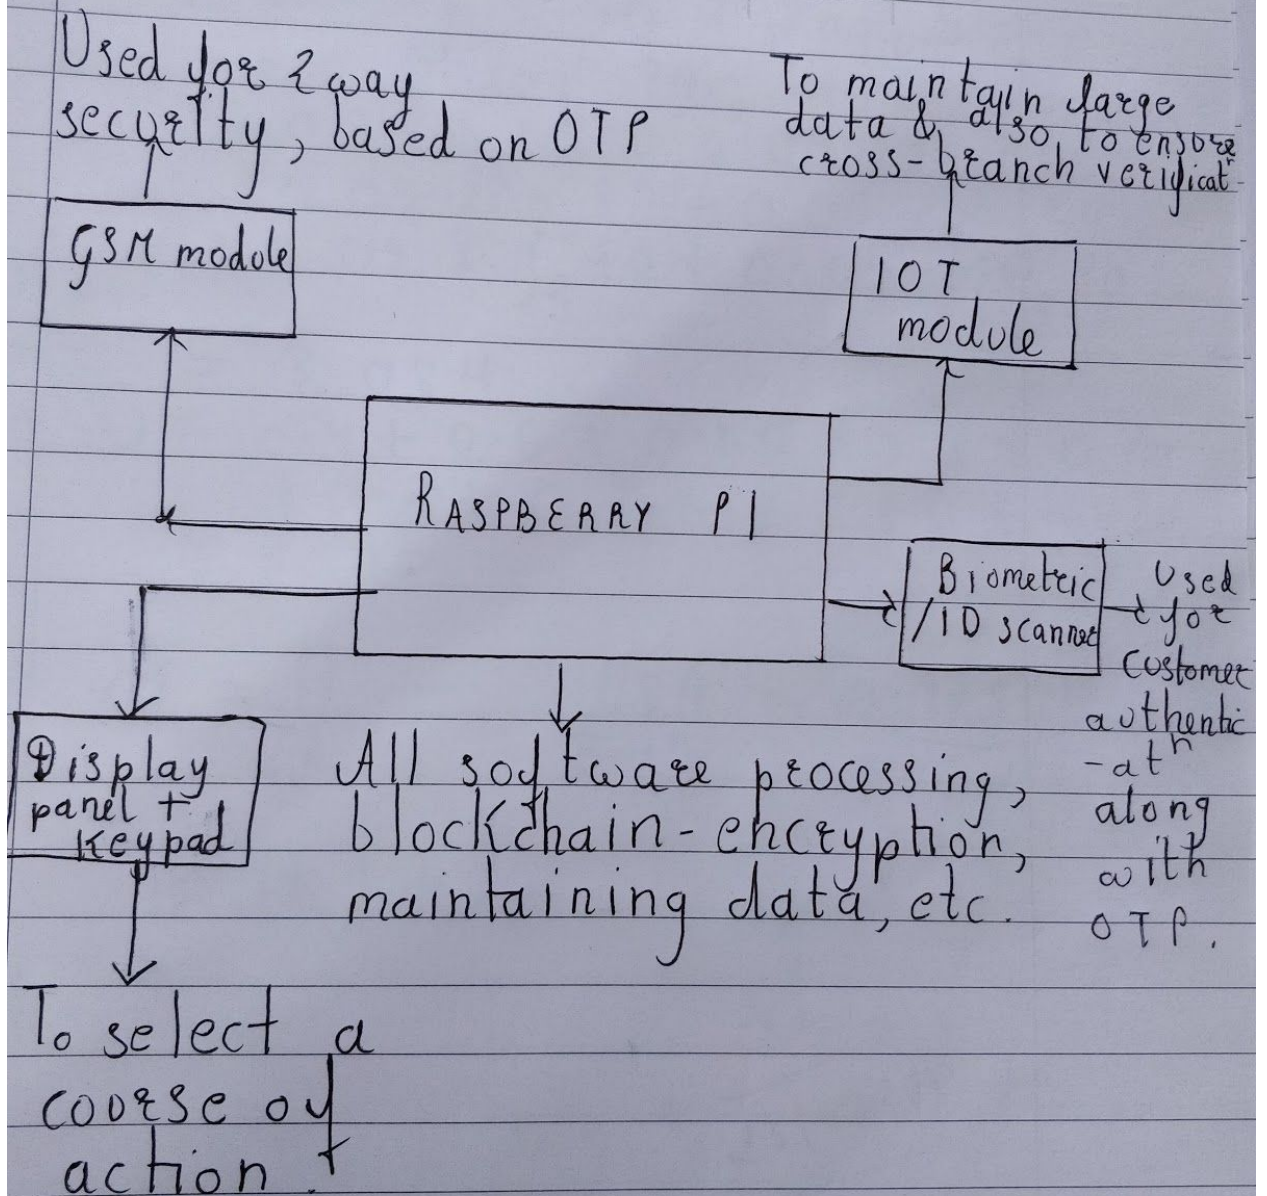 Used for 2 way
security, based on OTP
To maintain large
data & also to ensure
cross-branch verificatⁿ
GSM module
IOT
module
RASPBERRY PI
Biometric
/ID scanner
Used
for
customer
authentic
-atⁿ
along
with
OTP.
Display
panel +
keypad
All software processing,
blockchain-encryption,
maintaining data, etc.
To select a
course of
action.